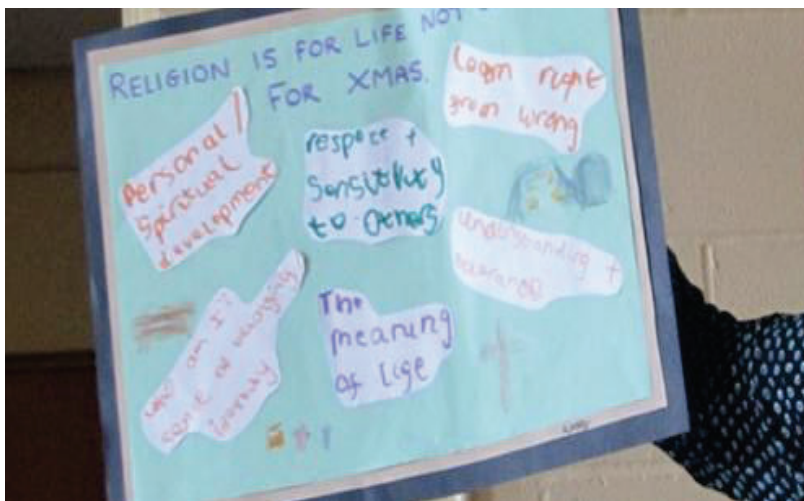 RELIGION IS FOR LIFE NOT
FOR XMAS.
Learn right
from wrong
Personal /
Spiritual
development
respect +
Sensitivity
to others
understanding +
tolerance
who am I?
sense of belonging
identity
The
meaning
of life